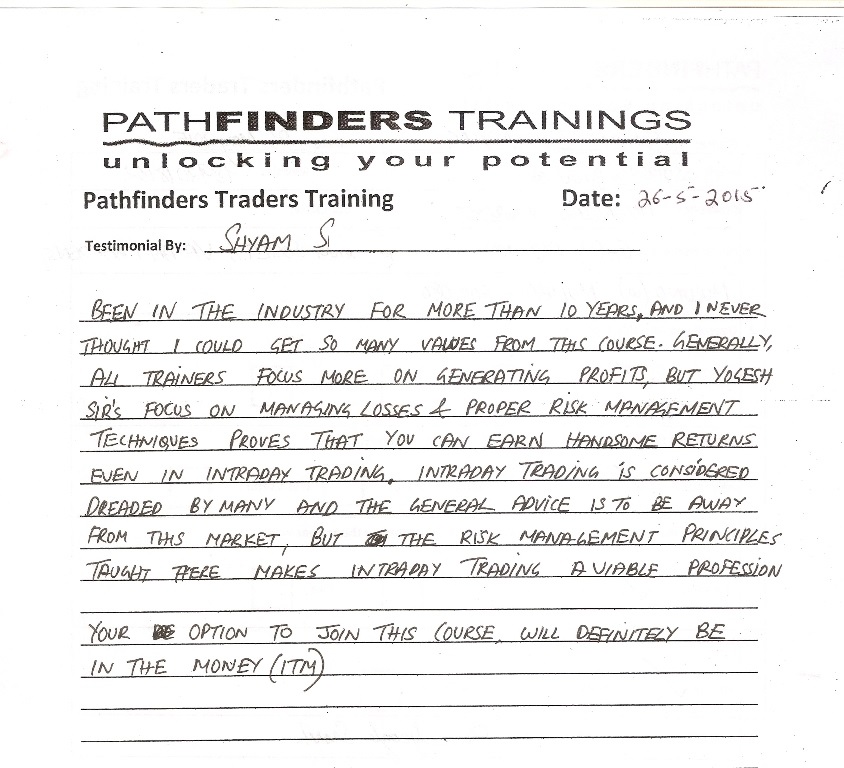 PATHFINDERS TRAININGS
unlocking your potential
Pathfinders Traders Training Date: 26-5-2015
Testimonial By: SHYAM S
BEEN IN THE INDUSTRY FOR MORE THAN 10 YEARS, AND I NEVER
THOUGHT I COULD GET SO MANY VALUES FROM THIS COURSE. GENERALLY,
ALL TRAINERS FOCUS MORE ON GENERATING PROFITS, BUT YOGESH
SIR'S FOCUS ON MANAGING LOSSES & PROPER RISK MANAGEMENT
TECHNIQUES PROVES THAT YOU CAN EARN HANDSOME RETURNS
EVEN IN INTRADAY TRADING. INTRADAY TRADING IS CONSIDERED
DREADED BY MANY AND THE GENERAL ADVICE IS TO BE AWAY
FROM THIS MARKET, BUT THE RISK MANAGEMENT PRINCIPLES
TAUGHT HERE MAKES INTRADAY TRADING A VIABLE PROFESSION
YOUR OPTION TO JOIN THIS COURSE, WILL DEFINITELY BE
IN THE MONEY (ITM)